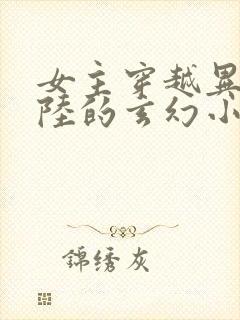 女主穿越異
陸的玄幻小
錦绣灰